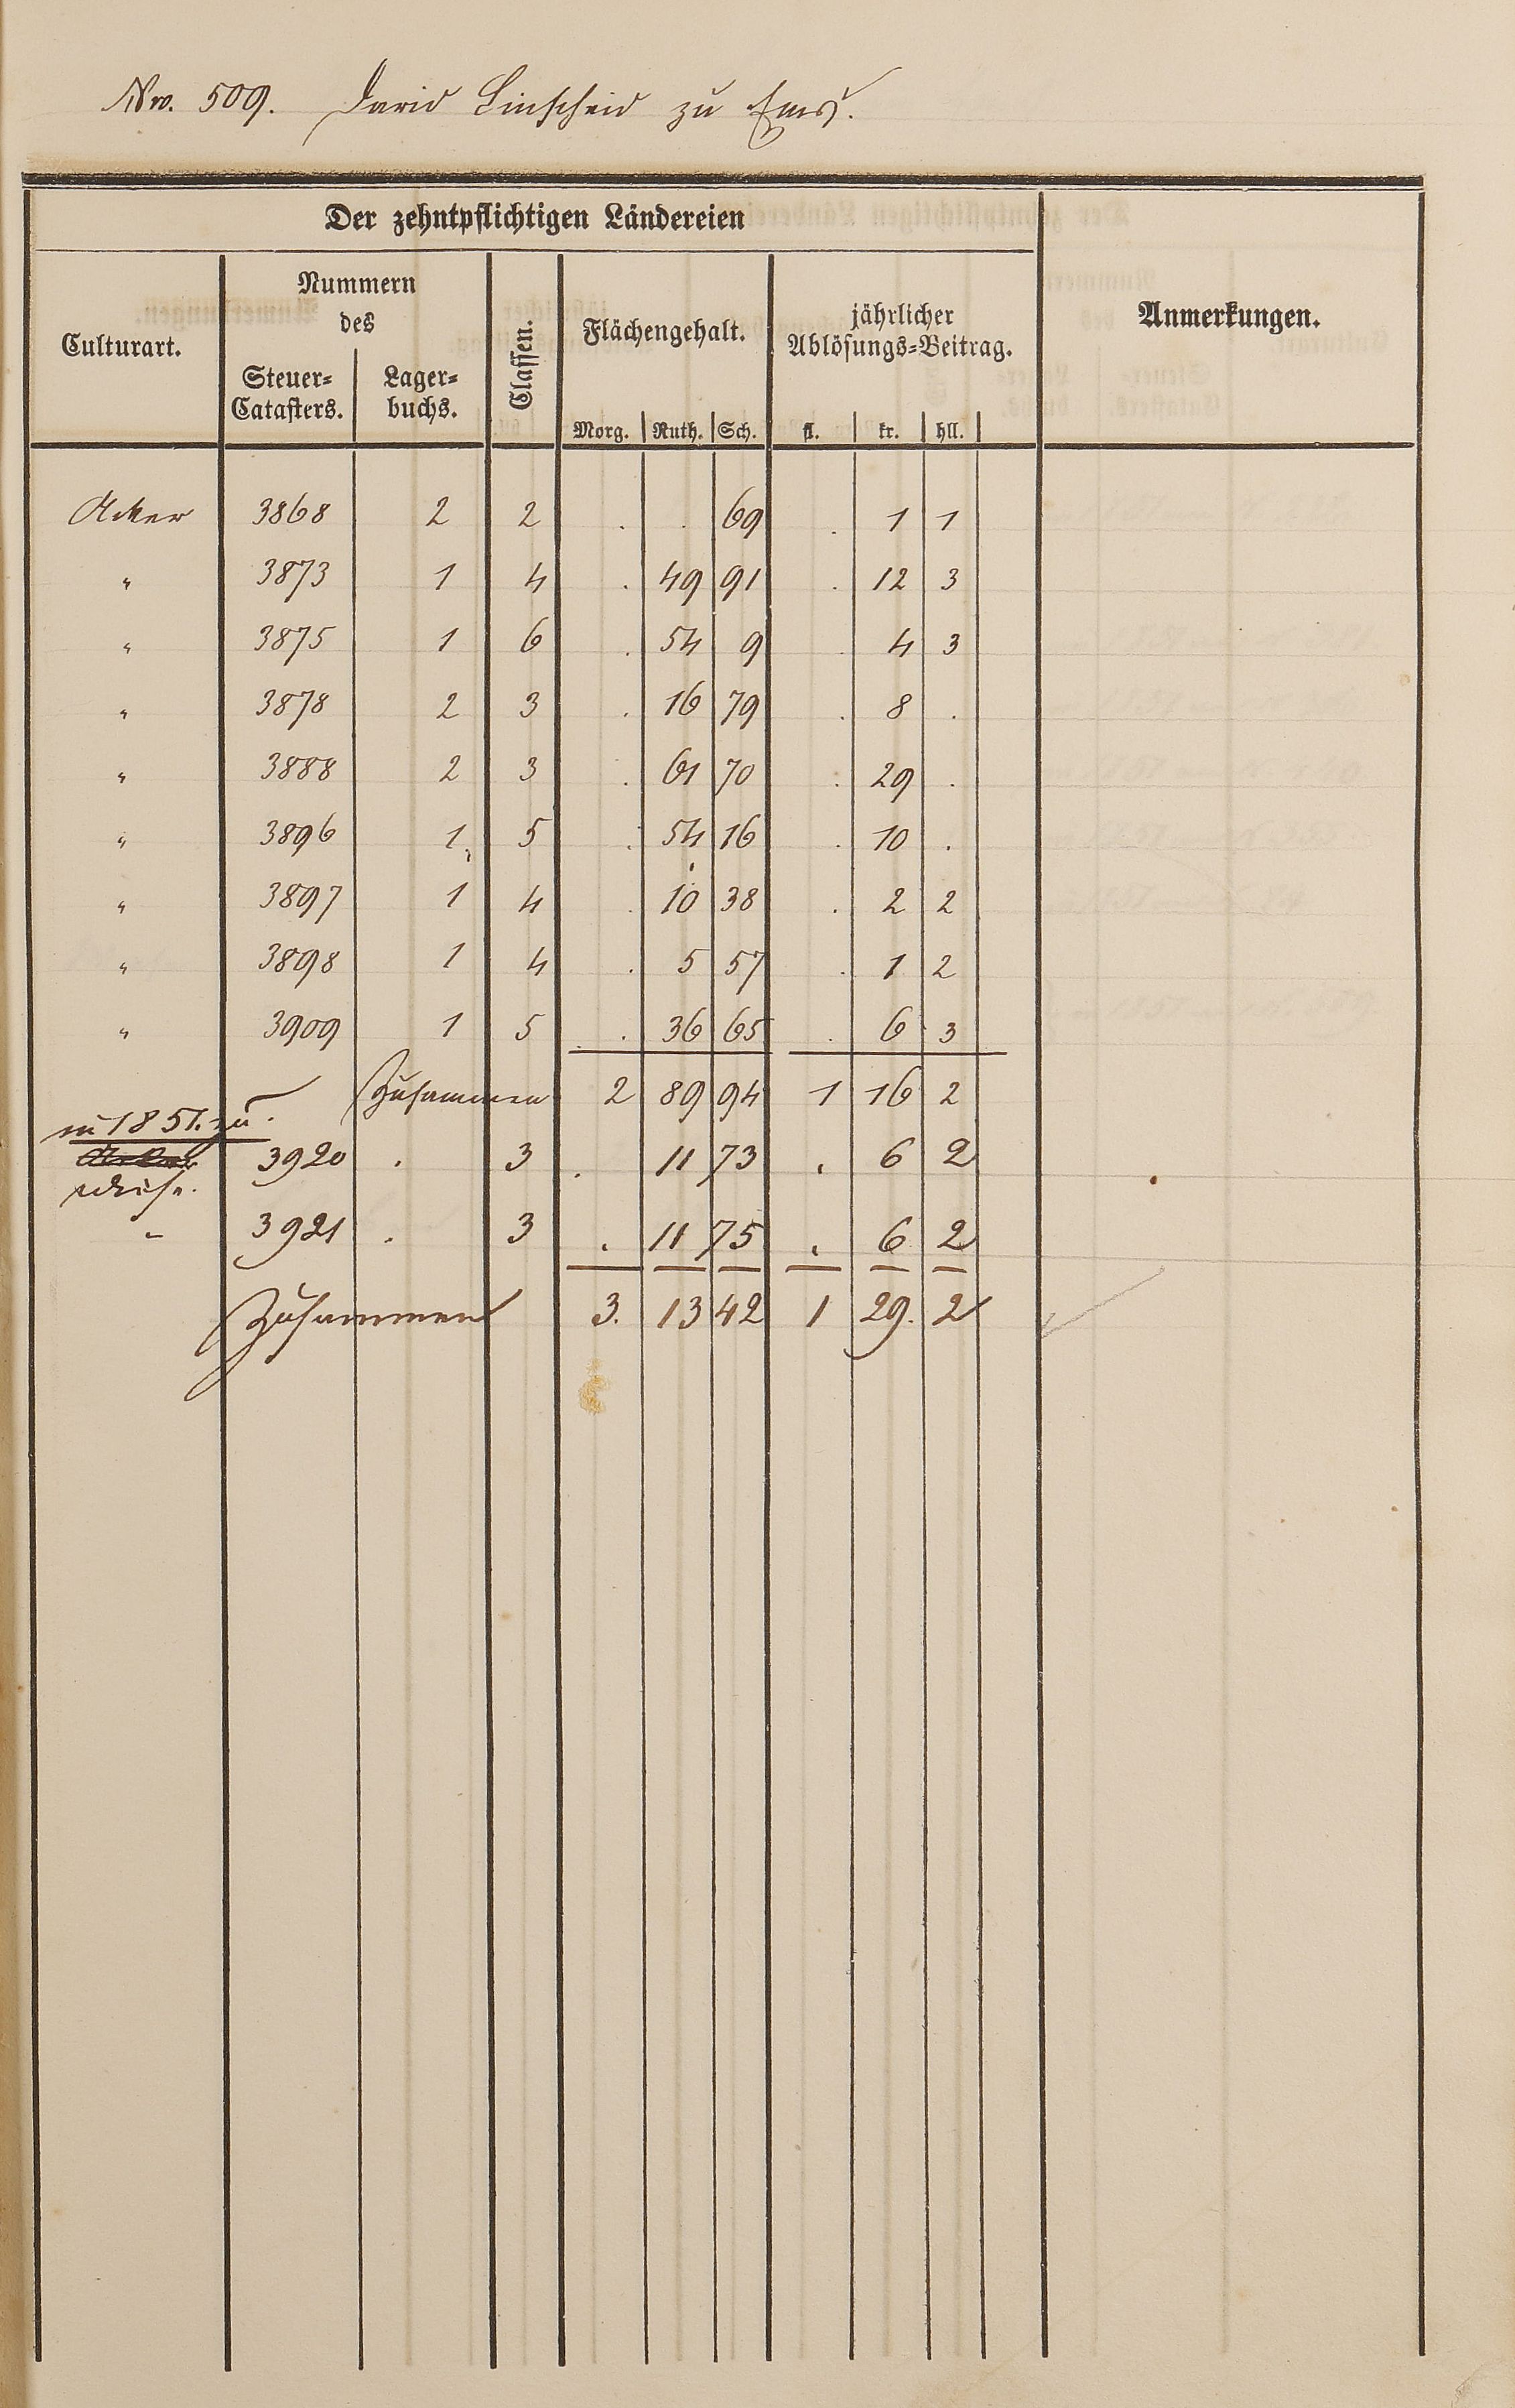 Nro. 509. David Linscheid zu Ems.
Der zehntpflichtigen Ländereien
Culturart. Nummern des Steuer=Catasters. Lager=buchs. Classen. Flächengehalt. Morg. Ruth. Sch. jährlicher Ablösungs=Beitrag. fl. kr. hll. Anmerkungen.
Acker 3868 2 2 . . 69 . 1 1
" 3873 1 4 . 49 91 . 12 3
" 3875 1 6 . 54 9 . 4 3
" 3878 2 3 . 16 79 . 8 .
" 3888 2 3 . 61 70 . 29 .
" 3896 1 5 . 54 16 . 10 .
" 3897 1 4 . 10 38 . 2 2
" 3898 1 4 . 5 57 . 1 2
" 3909 1 5 . 36 65 . 6 3
Zusammen 2 89 94 1 16 2
in 1851. zu.
Acker
Wiese. 3920 . 3 . 11 73 . 6 2
" 3921 . 3 . 11 75 . 6 2
Zusammen 3. 13 42 1 29. 2